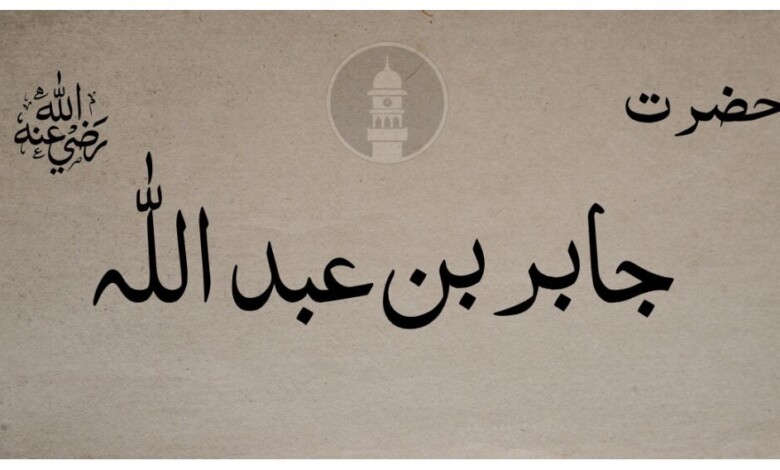 حضرت
رضي الله عنه
جابر بن عبد اللہ